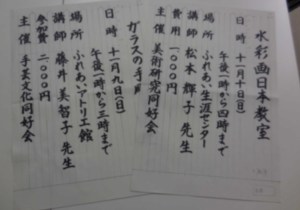 水彩画日本教室
日時 十一月十日(日)
午後一時から四時まで
場所 ふれあい生涯センター
講師 松本輝子先生
費用 一〇〇〇円
主催 美術研究同好会
ガラスの手
日時 十一月九日(日)
午後一時から三時まで
場所 ふれあいアトリエ館
講師 藤井美智子先生
参加費 二〇〇〇円
主催 手芸文化同好会